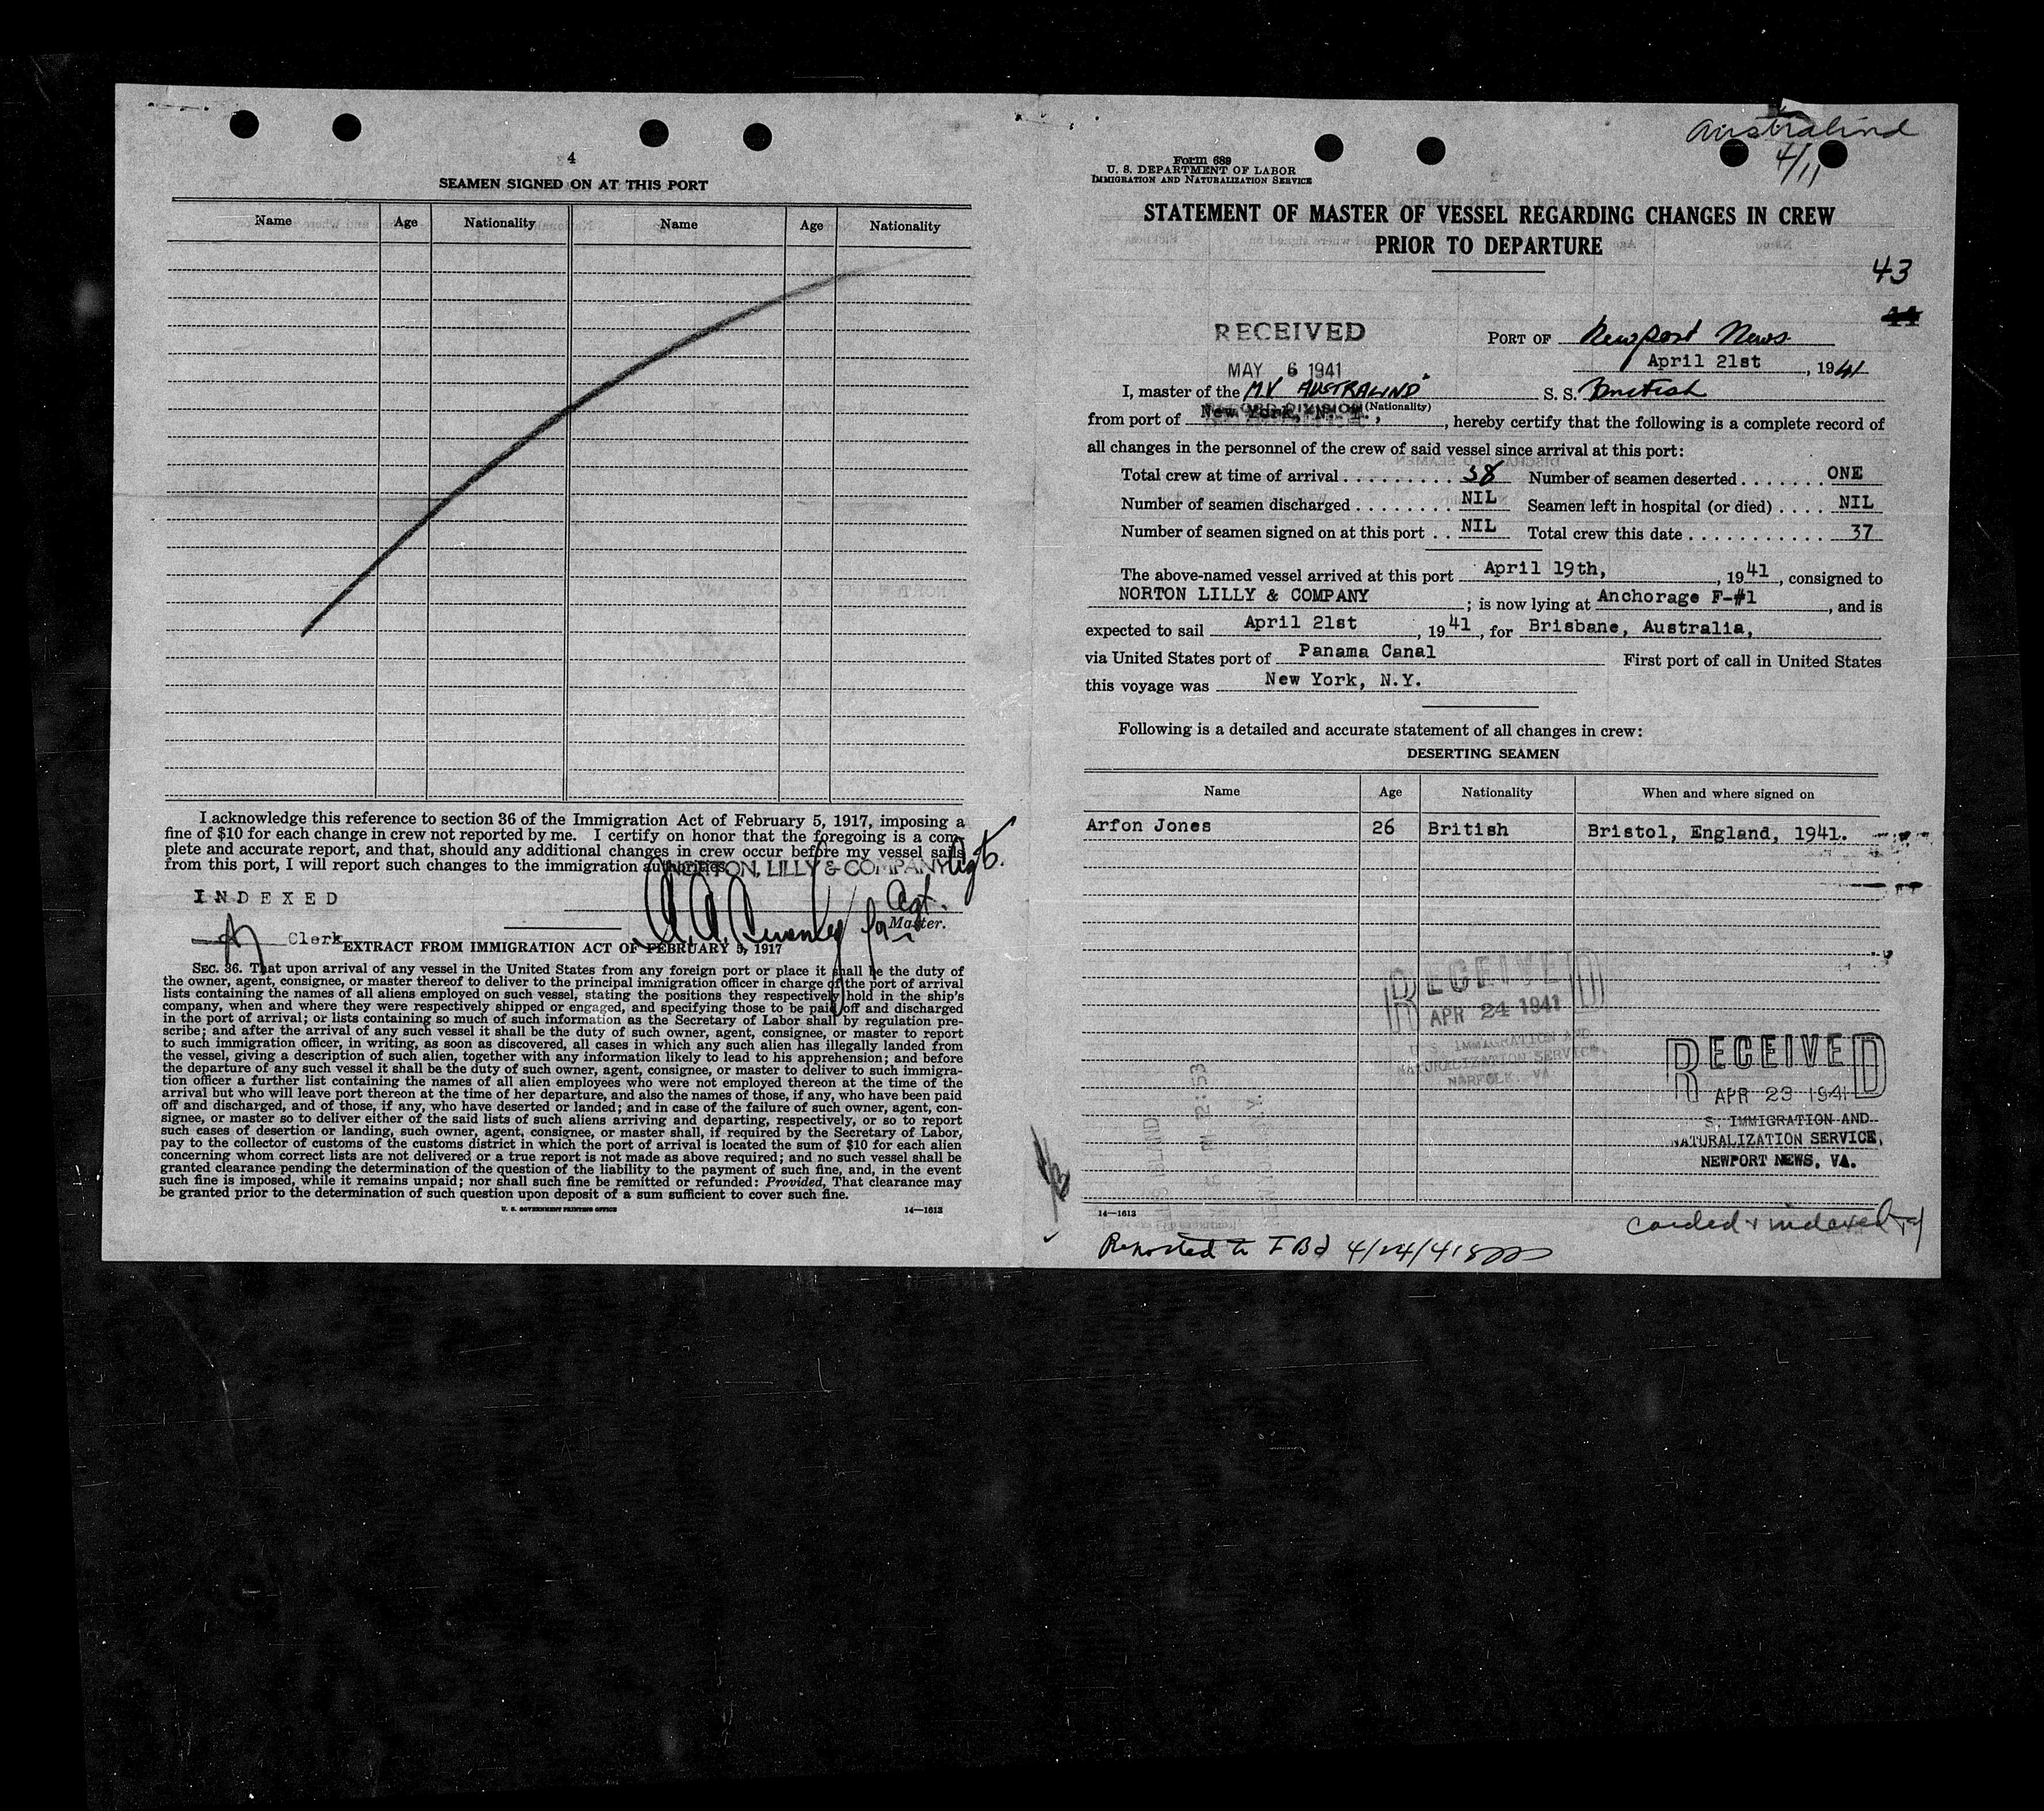 4
SEAMEN SIGNED ON AT THIS PORT
Name Age Nationality Name Age Nationality
I acknowledge this reference to section 36 of the Immigration Act of February 5, 1917, imposing a
fine of $10 for each change in crew not reported by me. I certify on honor that the foregoing is a com-
plete and accurate report, and that, should any additional changes in crew occur before my vessel sails
from this port, I will report such changes to the immigration authorities.
NORTON, LILLY & COMPANY Agt.
INDEXED
Agt.
for Master.
Clerk
EXTRACT FROM IMMIGRATION ACT OF FEBRUARY 5, 1917
SEC. 36. That upon arrival of any vessel in the United States from any foreign port or place it shall be the duty of
the owner, agent, consignee, or master thereof to deliver to the principal immigration officer in charge of the port of arrival
lists containing the names of all aliens employed on such vessel, stating the positions they respectively hold in the ship's
company, when and where they were respectively shipped or engaged, and specifying those to be paid off and discharged
in the port of arrival; or lists containing so much of such information as the Secretary of Labor shall by regulation pre-
scribe; and after the arrival of any such vessel it shall be the duty of such owner, agent, consignee, or master to report
to such immigration officer, in writing, as soon as discovered, all cases in which any such alien has illegally landed from
the vessel, giving a description of such alien, together with any information likely to lead to his apprehension; and before
the departure of any such vessel it shall be the duty of such owner, agent, consignee, or master to deliver to such immigra-
tion officer a further list containing the names of all alien employees who were not employed thereon at the time of the
arrival but who will leave port thereon at the time of her departure, and also the names of those, if any, who have been paid
off and discharged, and of those, if any, who have deserted or landed; and in case of the failure of such owner, agent, con-
signee, or master so to deliver either of the said lists of such aliens arriving and departing, respectively, or so to report
such cases of desertion or landing, such owner, agent, consignee, or master shall, if required by the Secretary of Labor,
pay to the collector of customs of the customs district in which the port of arrival is located the sum of $10 for each alien
concerning whom correct lists are not delivered or a true report is not made as above required; and no such vessel shall be
granted clearance pending the determination of the question of the liability to the payment of such fine, and, in the event
such fine is imposed, while it remains unpaid; nor shall such fine be remitted or refunded: Provided, That clearance may
be granted prior to the determination of such question upon deposit of a sum sufficient to cover such fine.
U. S. GOVERNMENT PRINTING OFFICE 14—1613
Australind
4/11
Form 689
U. S. DEPARTMENT OF LABOR
IMMIGRATION AND NATURALIZATION SERVICE
STATEMENT OF MASTER OF VESSEL REGARDING CHANGES IN CREW
PRIOR TO DEPARTURE
43
44
RECEIVED
MAY 6 1941
PORT OF Newport News
April 21st, 1941
I, master of the M.V AUSTRALIND S. S. British
(Nationality)
from port of New York, N. Y., hereby certify that the following is a complete record of
all changes in the personnel of the crew of said vessel since arrival at this port:
Total crew at time of arrival 38 Number of seamen deserted ONE
Number of seamen discharged NIL Seamen left in hospital (or died) NIL
Number of seamen signed on at this port NIL Total crew this date 37
The above-named vessel arrived at this port April 19th, 1941, consigned to
NORTON LILLY & COMPANY; is now lying at Anchorage F-#1, and is
expected to sail April 21st, 1941, for Brisbane, Australia,
via United States port of Panama Canal First port of call in United States
this voyage was New York, N.Y.
Following is a detailed and accurate statement of all changes in crew:
DESERTING SEAMEN
Name Age Nationality When and where signed on
Arfon Jones 26 British Bristol, England, 1941.
RECEIVED
APR 24 1941
U. S. IMMIGRATION AND
NATURALIZATION SERVICE,
NORFOLK, VA.
RECEIVED
APR 23 1941
S. IMMIGRATION AND
NATURALIZATION SERVICE,
NEWPORT NEWS, VA.
14—1613
carded & indexed
Reported to FBI 4/24/41